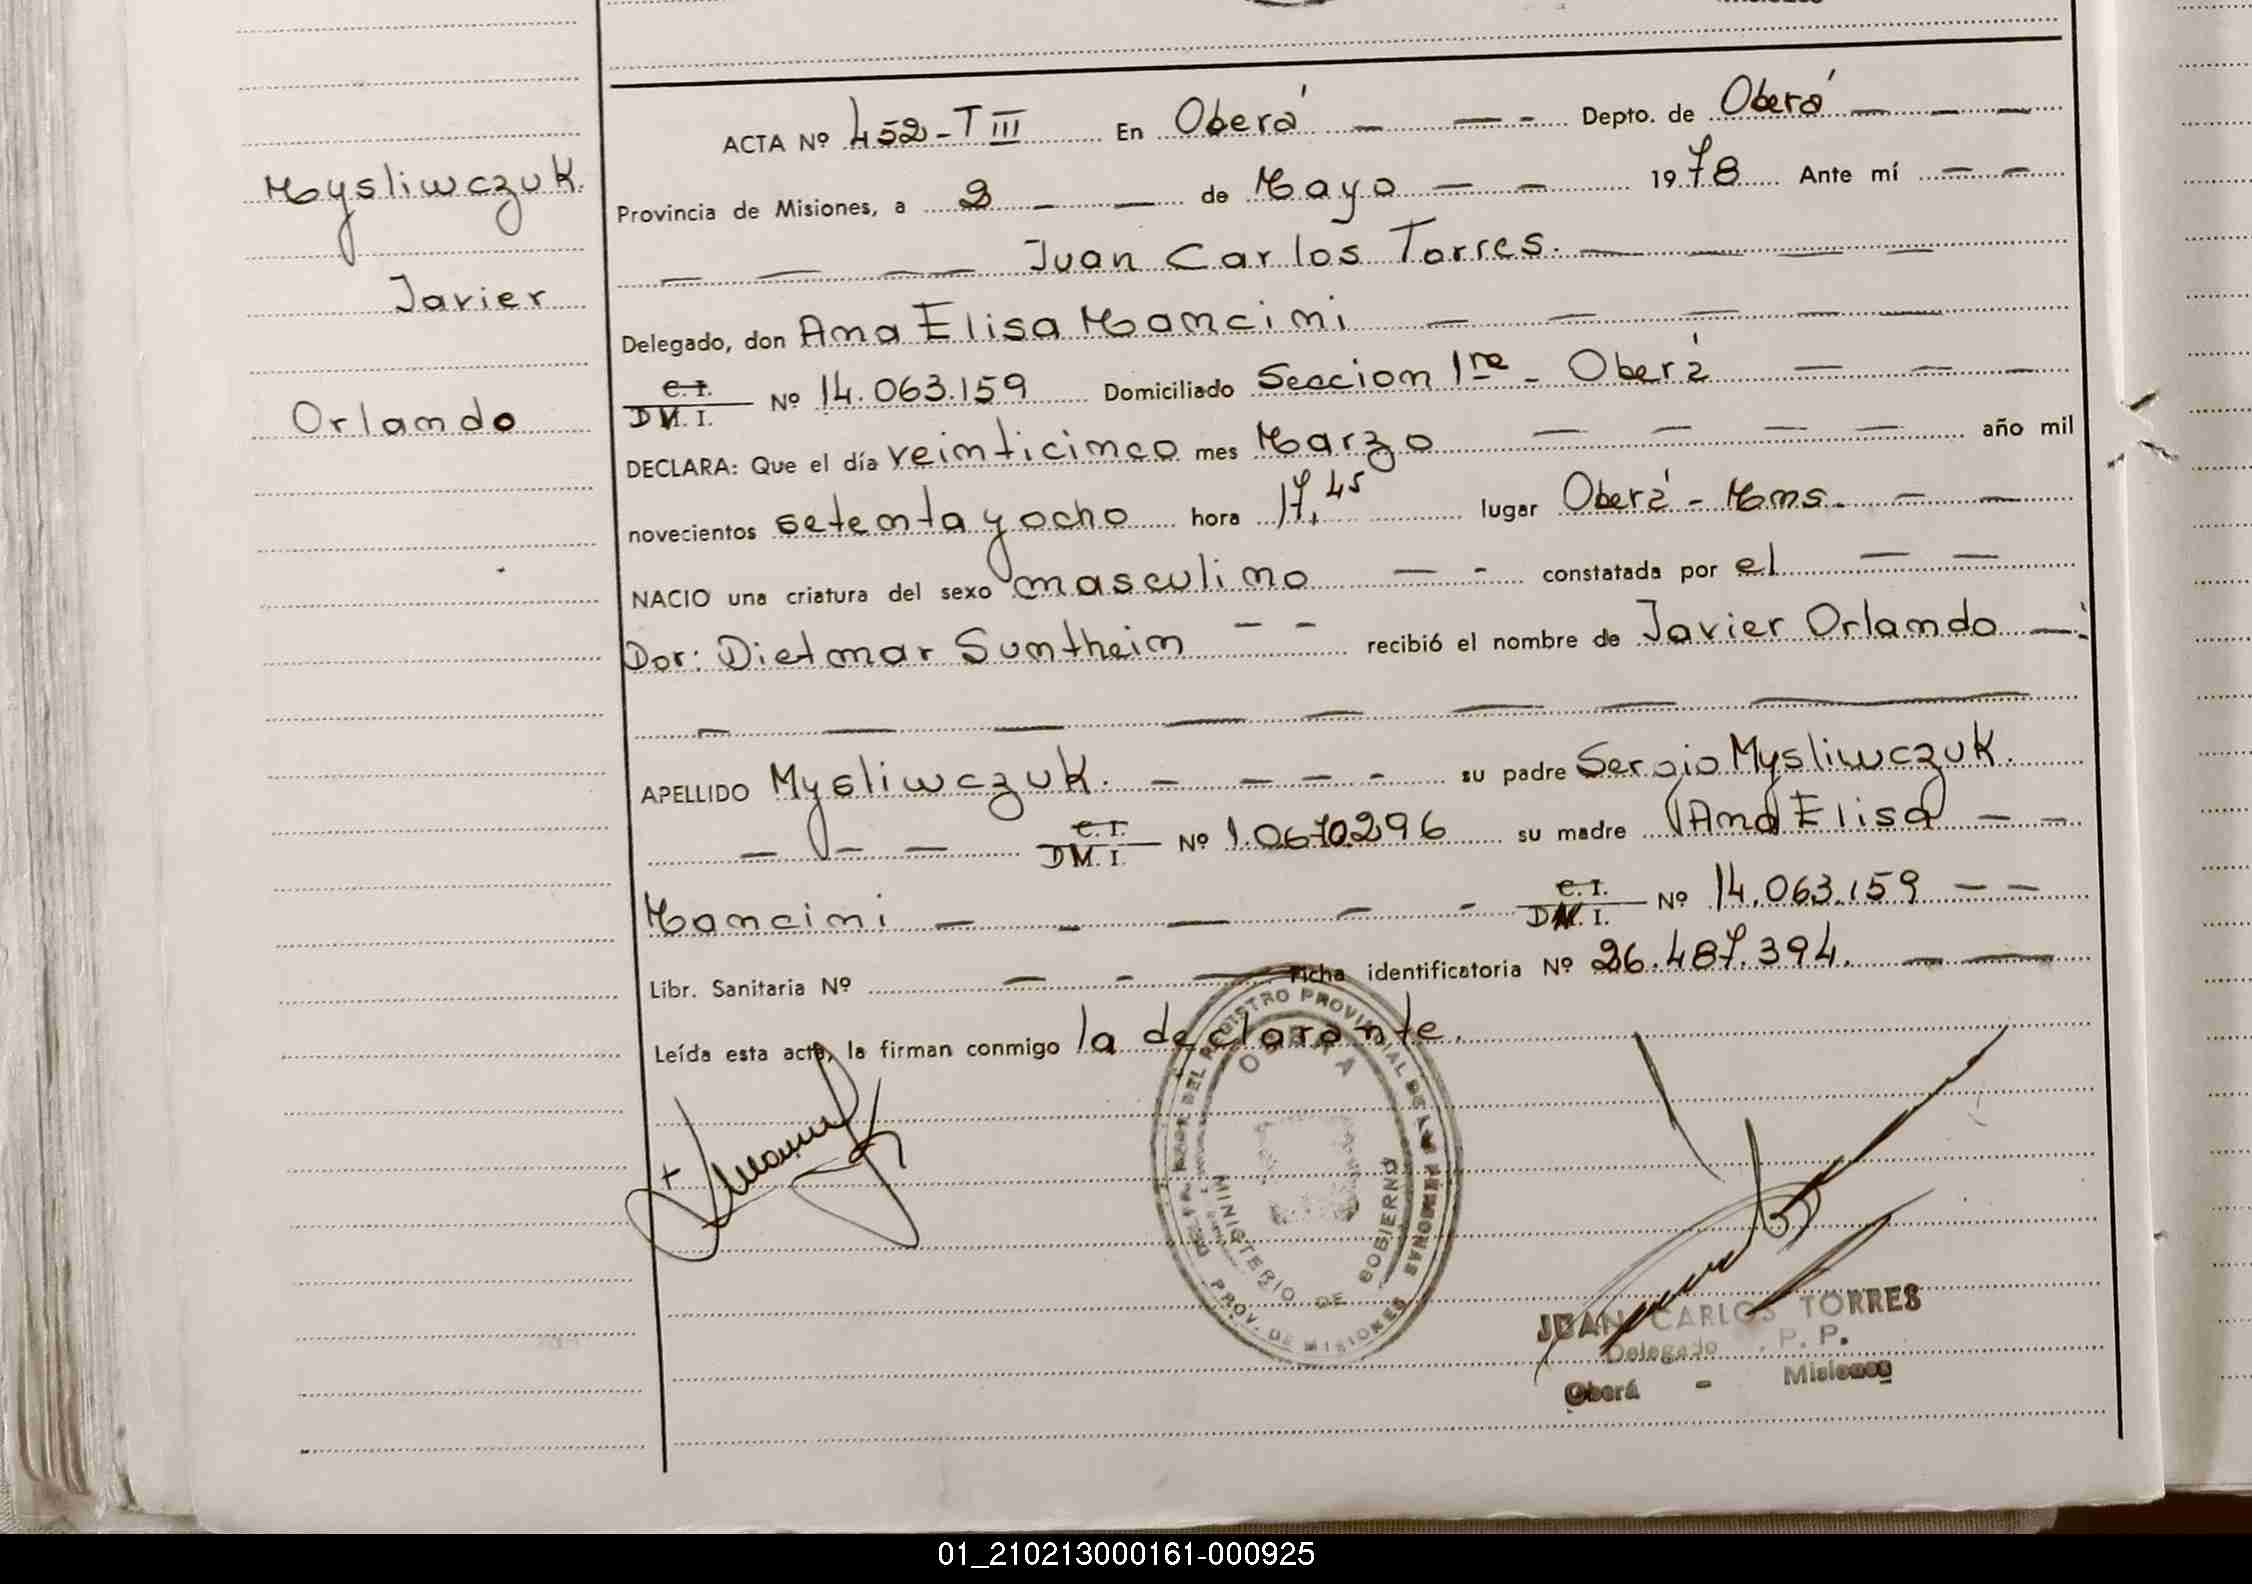 Mysliwczuk.
Javier
Orlando
ACTA Nº 452-T III En Oberá — — - Depto. de Oberá — — —
Provincia de Misiones, a 2 — — de Mayo — — 1978 Ante mí — —
— — — — Juan Carlos Torres. — — — —
Delegado, don Ana Elisa Mancini — — — — —
C.I.
D N. I. Nº 14.063.159 Domiciliado Seccion 1ra - Oberá — — —
DECLARA: Que el día veinticinco mes Marzo — — — — año mil
novecientos setenta y ocho hora 17,45 lugar Oberá - Mns. — —
NACIO una criatura del sexo masculino — - constatada por el — —
Dor: Dietmar Sumtheim — — recibió el nombre de Javier Orlando —
— — — — — — —
APELLIDO Mysliwczuk. — — — - su padre Sergio Mysliwczuk.
— — — C.I.
D M. I. Nº 1.0670296 su madre Ana Elisa — —
Mancini — — — — - C.I.
D N. I. Nº 14.063.159 — —
Libr. Sanitaria Nº — - — Ficha identificatoria Nº 26.487.394. — —
Leída esta acta, la firman conmigo la declarante.
OBERA
MINISTERIO DE GOBIERNO
PROV. DE MISIONES
JUAN CARLOS TORRES
Delegado P. P.
Oberá - Misiones
01_210213000161-000925